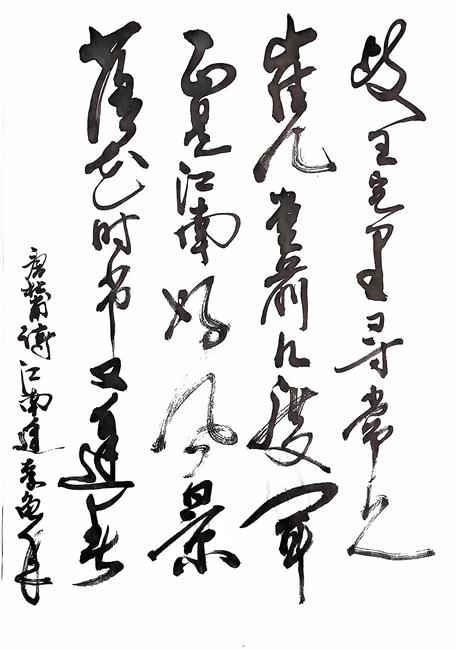 岐王宅里寻常见
崔九堂前几度闻
正是江南好风景
落花时节又逢君
唐杜甫诗江南逢李龟年